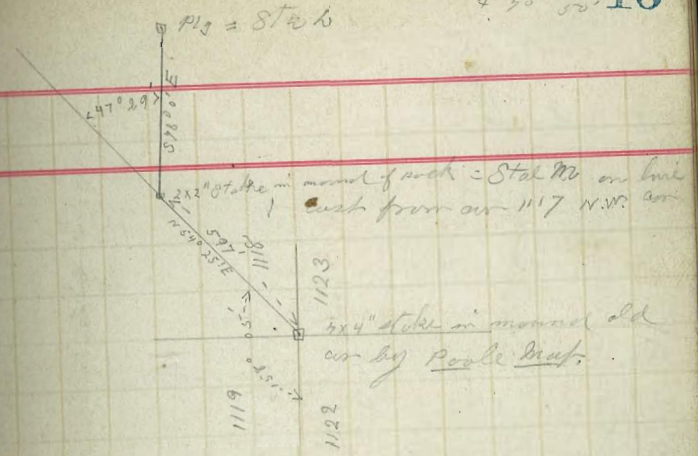 16
Plg = Sta L
S 78° 0' E
47° 29'
2x2" Stake in mound of rock = Sta M on line
east from cor 1117 N.W. cor
597'
N 64° 25' E
1118
1123
4x4" stake in mound old
cor by Poole Map.
1119
1122